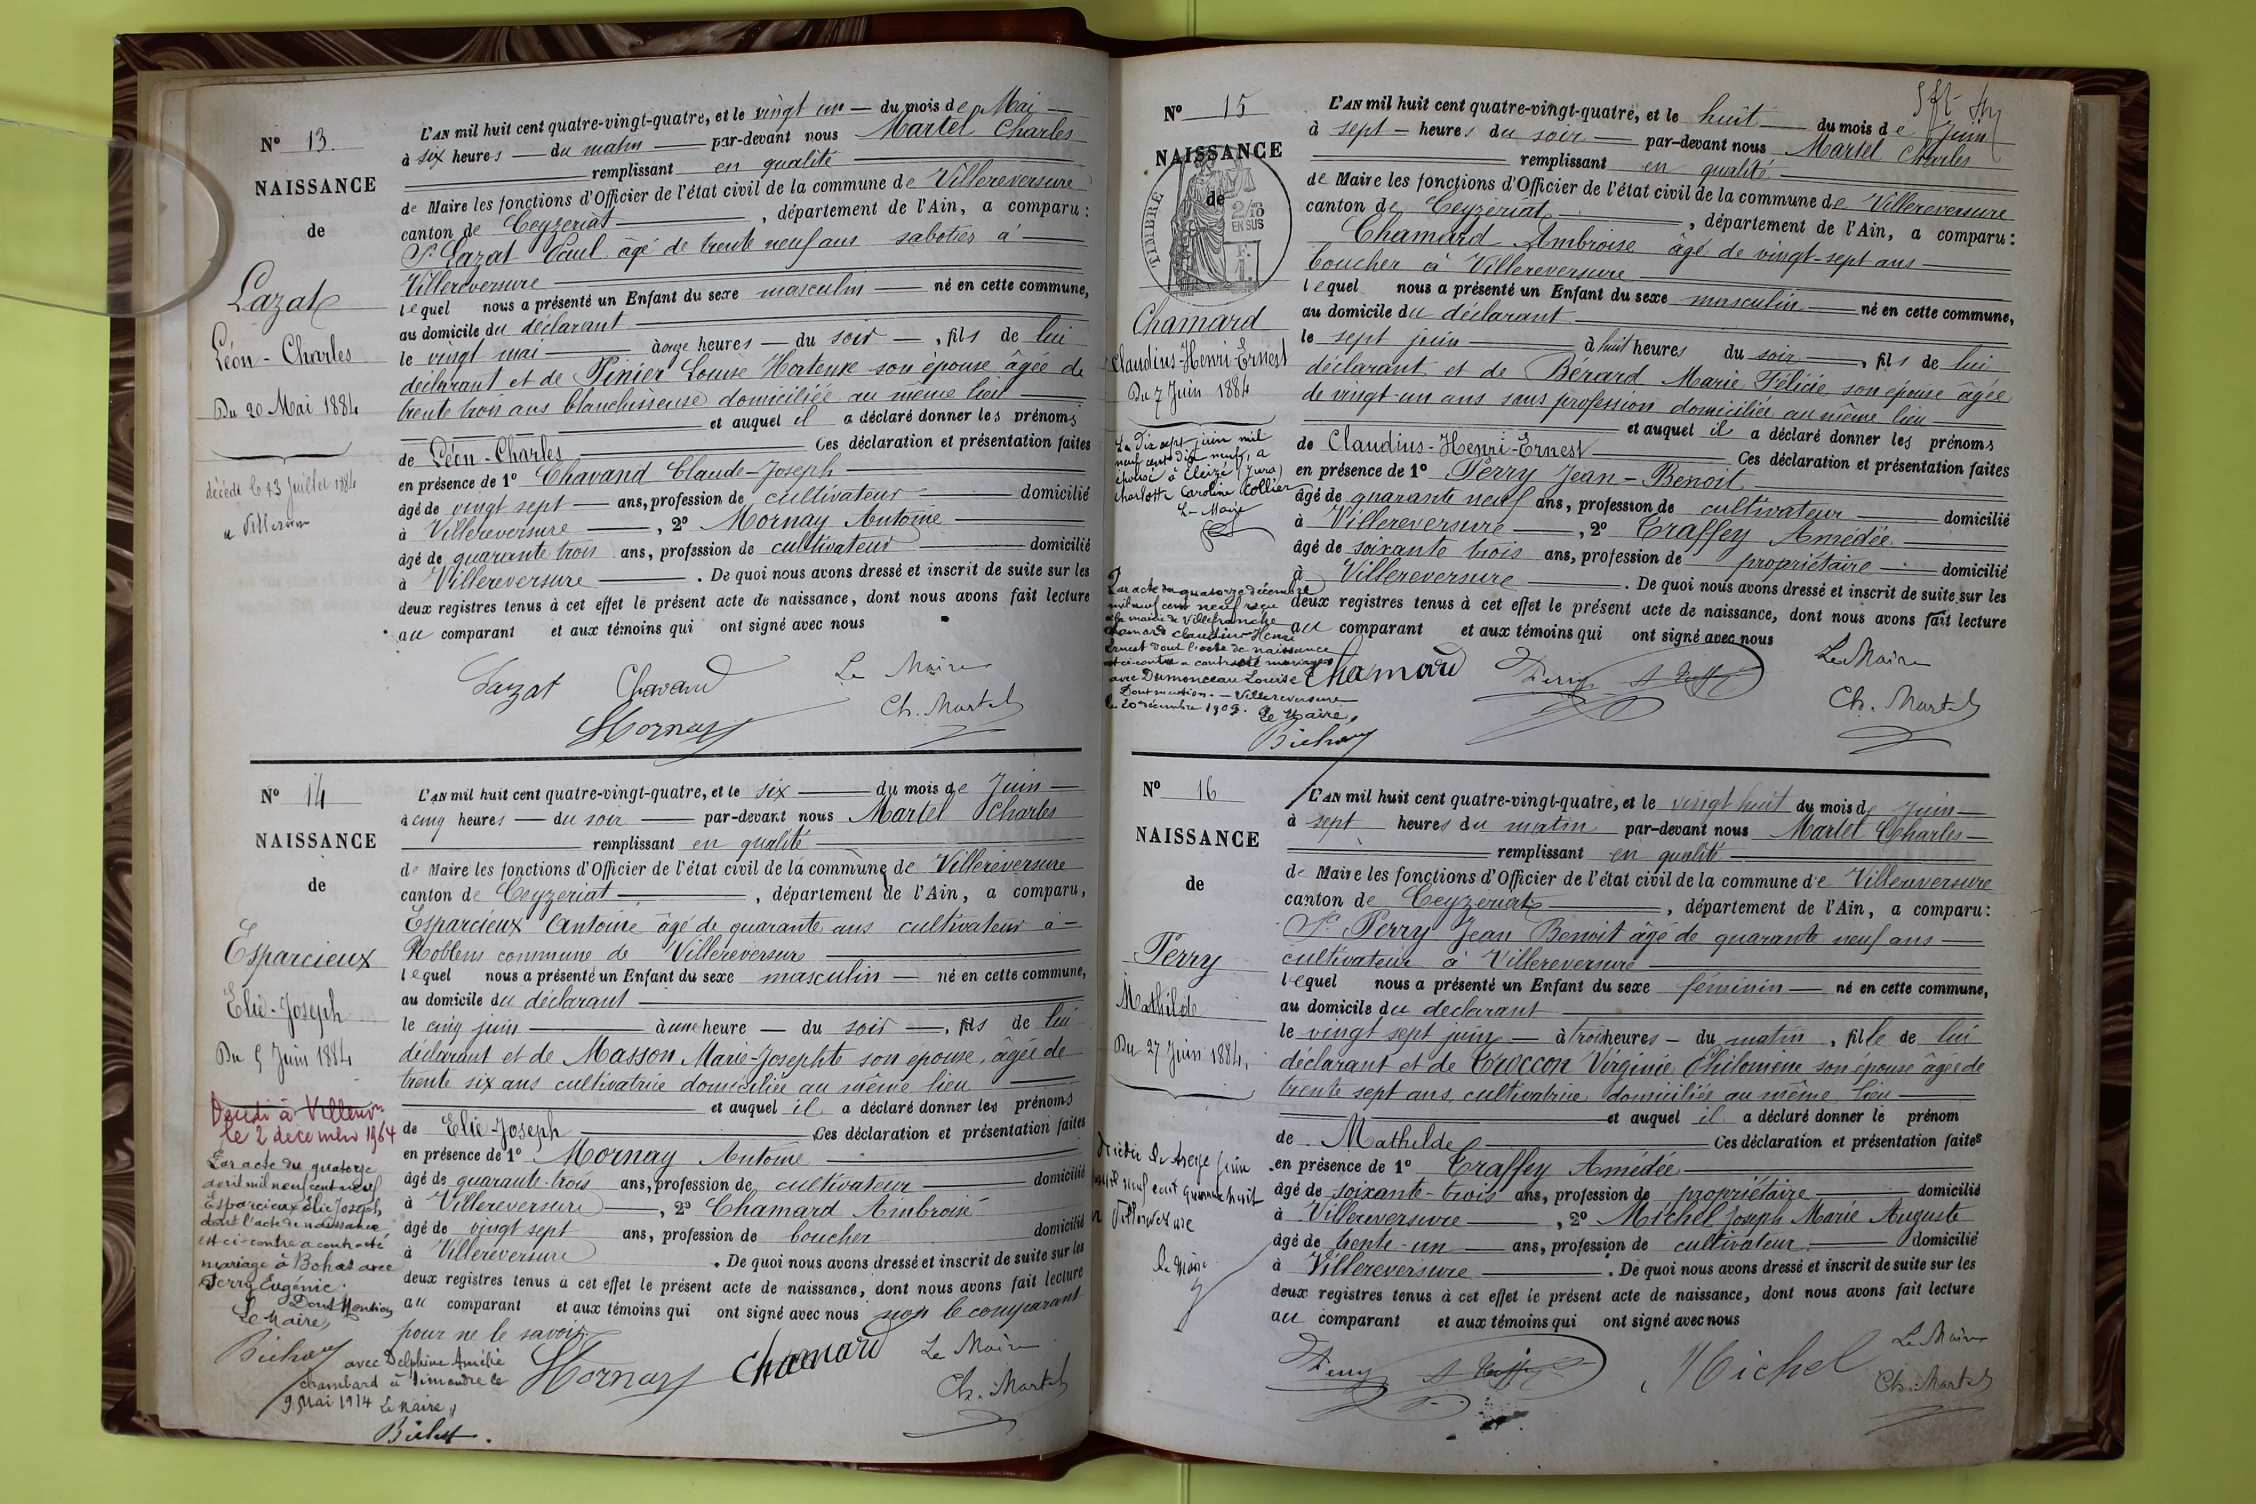 N° 13.
NAISSANCE
de
Lazat
Léon-Charles
Du 20 Mai 1884
décédé le 13 Juillet 1884
L'AN mil huit cent quatre-vingt-quatre, et le vingt un du mois de Mai
à six heures du matin par-devant nous Martel Charles
remplissant en qualité
de Maire les fonctions d'Officier de l'état civil de la commune de Villereversure
canton de Ceyzeriat, département de l'Ain, a comparu:
Sr Lazat Paul âgé de trente neuf ans sabotier à
Villereversure
lequel nous a présenté un Enfant du sexe masculin né en cette commune,
au domicile du déclarant
le vingt mai à onze heures du soir, fils de lui
déclarant et de Pinier Louise Hortense son épouse âgée de
trente trois ans blanchisseuse domiciliée au même lieu
et auquel il a déclaré donner les prénoms
de Léon-Charles Ces déclaration et présentation faites
en présence de 1° Chavand Claude-Joseph
âgé de vingt sept ans, profession de cultivateur domicilié
à Villereversure, 2° Mornay Antoine
âgé de quarante trois ans, profession de cultivateur domicilié
à Villereversure. De quoi nous avons dressé et inscrit de suite sur les
deux registres tenus à cet effet le présent acte de naissance, dont nous avons fait lecture
au comparant et aux témoins qui ont signé avec nous
Lazat Chavand Le Maire
Mornay Ch. Martel
N° 14
NAISSANCE
de
Esparcieux
Elie-Joseph
Du 5 Juin 1884
Décédé à Villerev
le 2 décembre 1964
Par acte du quatorze
avril mil neuf cent neuf
Esparcieux Elie Joseph
dont l'acte de naissance
est ci-contre a contracté
mariage à Bohas avec
Perry Eugénie.
Dont Mention
Le Maire,
avec Delphine Amélie
chambard à Simandre le
9 Mai 1914 Le Maire
L'AN mil huit cent quatre-vingt-quatre, et le six du mois de Juin
à cinq heures du soir par-devant nous Martel Charles
remplissant en qualité
de Maire les fonctions d'Officier de l'état civil de la commune de Villereversure
canton de Ceyzeriat, département de l'Ain, a comparu,
Esparcieux Antoine âgé de quarante ans cultivateur à
Noblens commune de Villereversure
lequel nous a présenté un Enfant du sexe masculin né en cette commune,
au domicile du déclarant
le cinq juin à une heure du soir, fils de lui
déclarant et de Masson Marie-Josephte son épouse, âgée de
trente six ans cultivatrice domiciliée au même lieu
et auquel il a déclaré donner les prénoms
de Elie-Joseph Ces déclaration et présentation faites
en présence de 1° Mornay Antoine
âgé de quarante-trois ans, profession de cultivateur domicilié
à Villereversure, 2° Chamard Ambroise
âgé de vingt sept ans, profession de boucher domicilié
à Villereversure. De quoi nous avons dressé et inscrit de suite sur les
deux registres tenus à cet effet le présent acte de naissance, dont nous avons fait lecture
au comparant et aux témoins qui ont signé avec nous non le comparant
pour ne le savoir.
Mornay Chamard Le Maire
Ch. Martel
N° 15
NAISSANCE
de
TIMBRE
2/10
EN SUS
F.
1.
Chamard
Claudius-Henri-Ernest
Du 7 Juin 1884
Le dix sept juin mil
neuf cent dix neuf, a
épousé à Cleizé (Jura)
Charlotte Caroline Collier
Le Maire
Par acte du quatorze décembre
mil neuf cent neuf reçu
à la mairie de Villefranche
Chamard Claudius Henri
Ernest dont l'acte de naissance
est ci-contre a contracté mariage
avec Dumonceau Louise
Dont mention. Villereversure
le 20 décembre 1909. Le Maire,
L'AN mil huit cent quatre-vingt-quatre, et le huit du mois de Juin
à sept heures du soir par-devant nous Martel Charles
remplissant en qualité
de Maire les fonctions d'Officier de l'état civil de la commune de Villereversure
canton de Ceyzeriat, département de l'Ain, a comparu:
Chamard Ambroise âgé de vingt-sept ans
boucher à Villereversure
lequel nous a présenté un Enfant du sexe masculin né en cette commune,
au domicile du déclarant
le sept juin à huit heures du soir, fils de lui
déclarant et de Bérard Marie Félicie son épouse âgée
de vingt-un ans sans profession domiciliée au même lieu
et auquel il a déclaré donner les prénoms
de Claudius-Henri-Ernest Ces déclaration et présentation faites
en présence de 1° Perry Jean-Benoit
âgé de quarante neuf ans, profession de cultivateur domicilié
à Villereversure, 2° Traffey Amédée
âgé de soixante trois ans, profession de propriétaire domicilié
à Villereversure. De quoi nous avons dressé et inscrit de suite sur les
deux registres tenus à cet effet le présent acte de naissance, dont nous avons fait lecture
au comparant et aux témoins qui ont signé avec nous
Chamard Perry A Traffey Le Maire
Ch. Martel
N° 16
NAISSANCE
de
Perry
Mathilde
Du 27 Juin 1884.
Décédée le treize juin
mil neuf cent quarante huit
Villereversure
Le Maire
L'AN mil huit cent quatre-vingt-quatre, et le vingt huit du mois de Juin
à sept heures du matin par-devant nous Martel Charles
remplissant en qualité
de Maire les fonctions d'Officier de l'état civil de la commune de Villereversure
canton de Ceyzeriat, département de l'Ain, a comparu:
Sr Perry Jean Benoit âgé de quarante neuf ans
cultivateur à Villereversure
lequel nous a présenté un Enfant du sexe féminin né en cette commune,
au domicile du déclarant
le vingt sept juin à trois heures du matin, fille de lui
déclarant et de Croccon Virginie Philomène son épouse âgée de
trente sept ans, cultivatrice domiciliée au même lieu
et auquel il a déclaré donner le prénom
de Mathilde Ces déclaration et présentation faites
en présence de 1° Traffey Amédée
âgé de soixante-trois ans, profession de propriétaire domicilié
à Villereversure, 2° Michel Joseph Marie Auguste
âgé de trente-un ans, profession de cultivateur domicilié
à Villereversure. De quoi nous avons dressé et inscrit de suite sur les
deux registres tenus à cet effet le présent acte de naissance, dont nous avons fait lecture
au comparant et aux témoins qui ont signé avec nous
Perry A Traffey Michel Le Maire
Ch. Martel